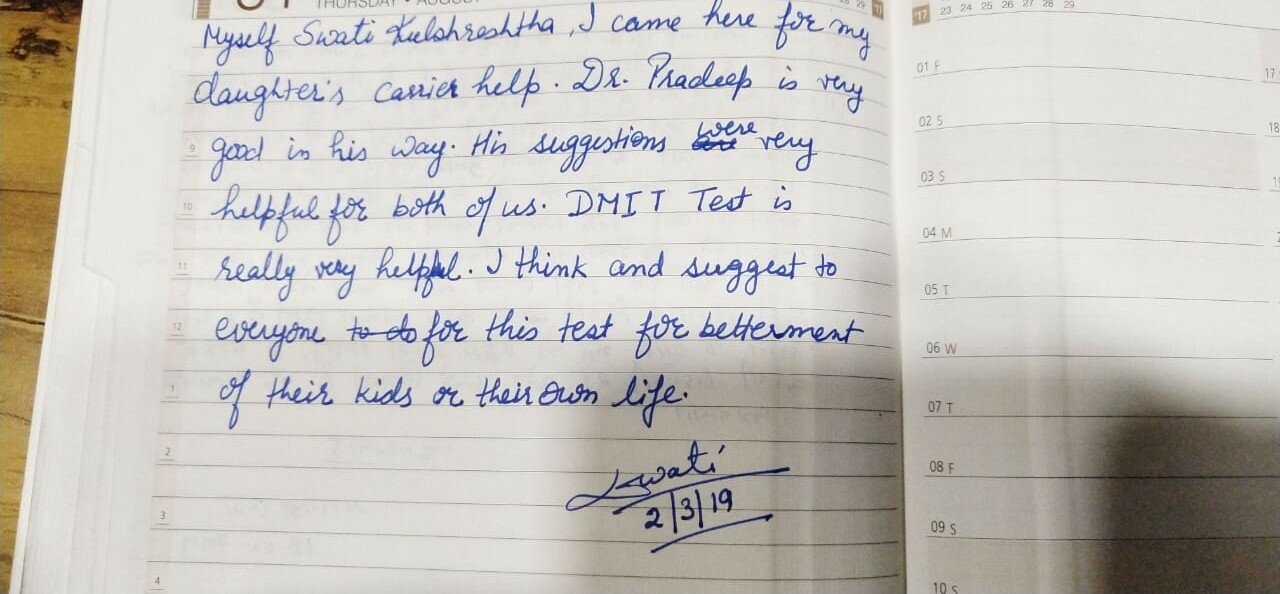 THURSDAY • AUGUST
Myself Swati Kulshreshtha, I came here for my
daughter's carrier help. Dr. Pradeep is very
9 good in his way. His suggestions were very
10 helpful for both of us. DMIT Test is
11 really very helpful. I think and suggest to
12 everyone to do for this test for betterment
1 of their kids or their own life.
2
3
4
Swati
2/3/19
17 23 24 25 26 27 28 29
01 F
02 S
03 S
04 M
05 T
06 W
07 T
08 F
09 S
10 S
17
18